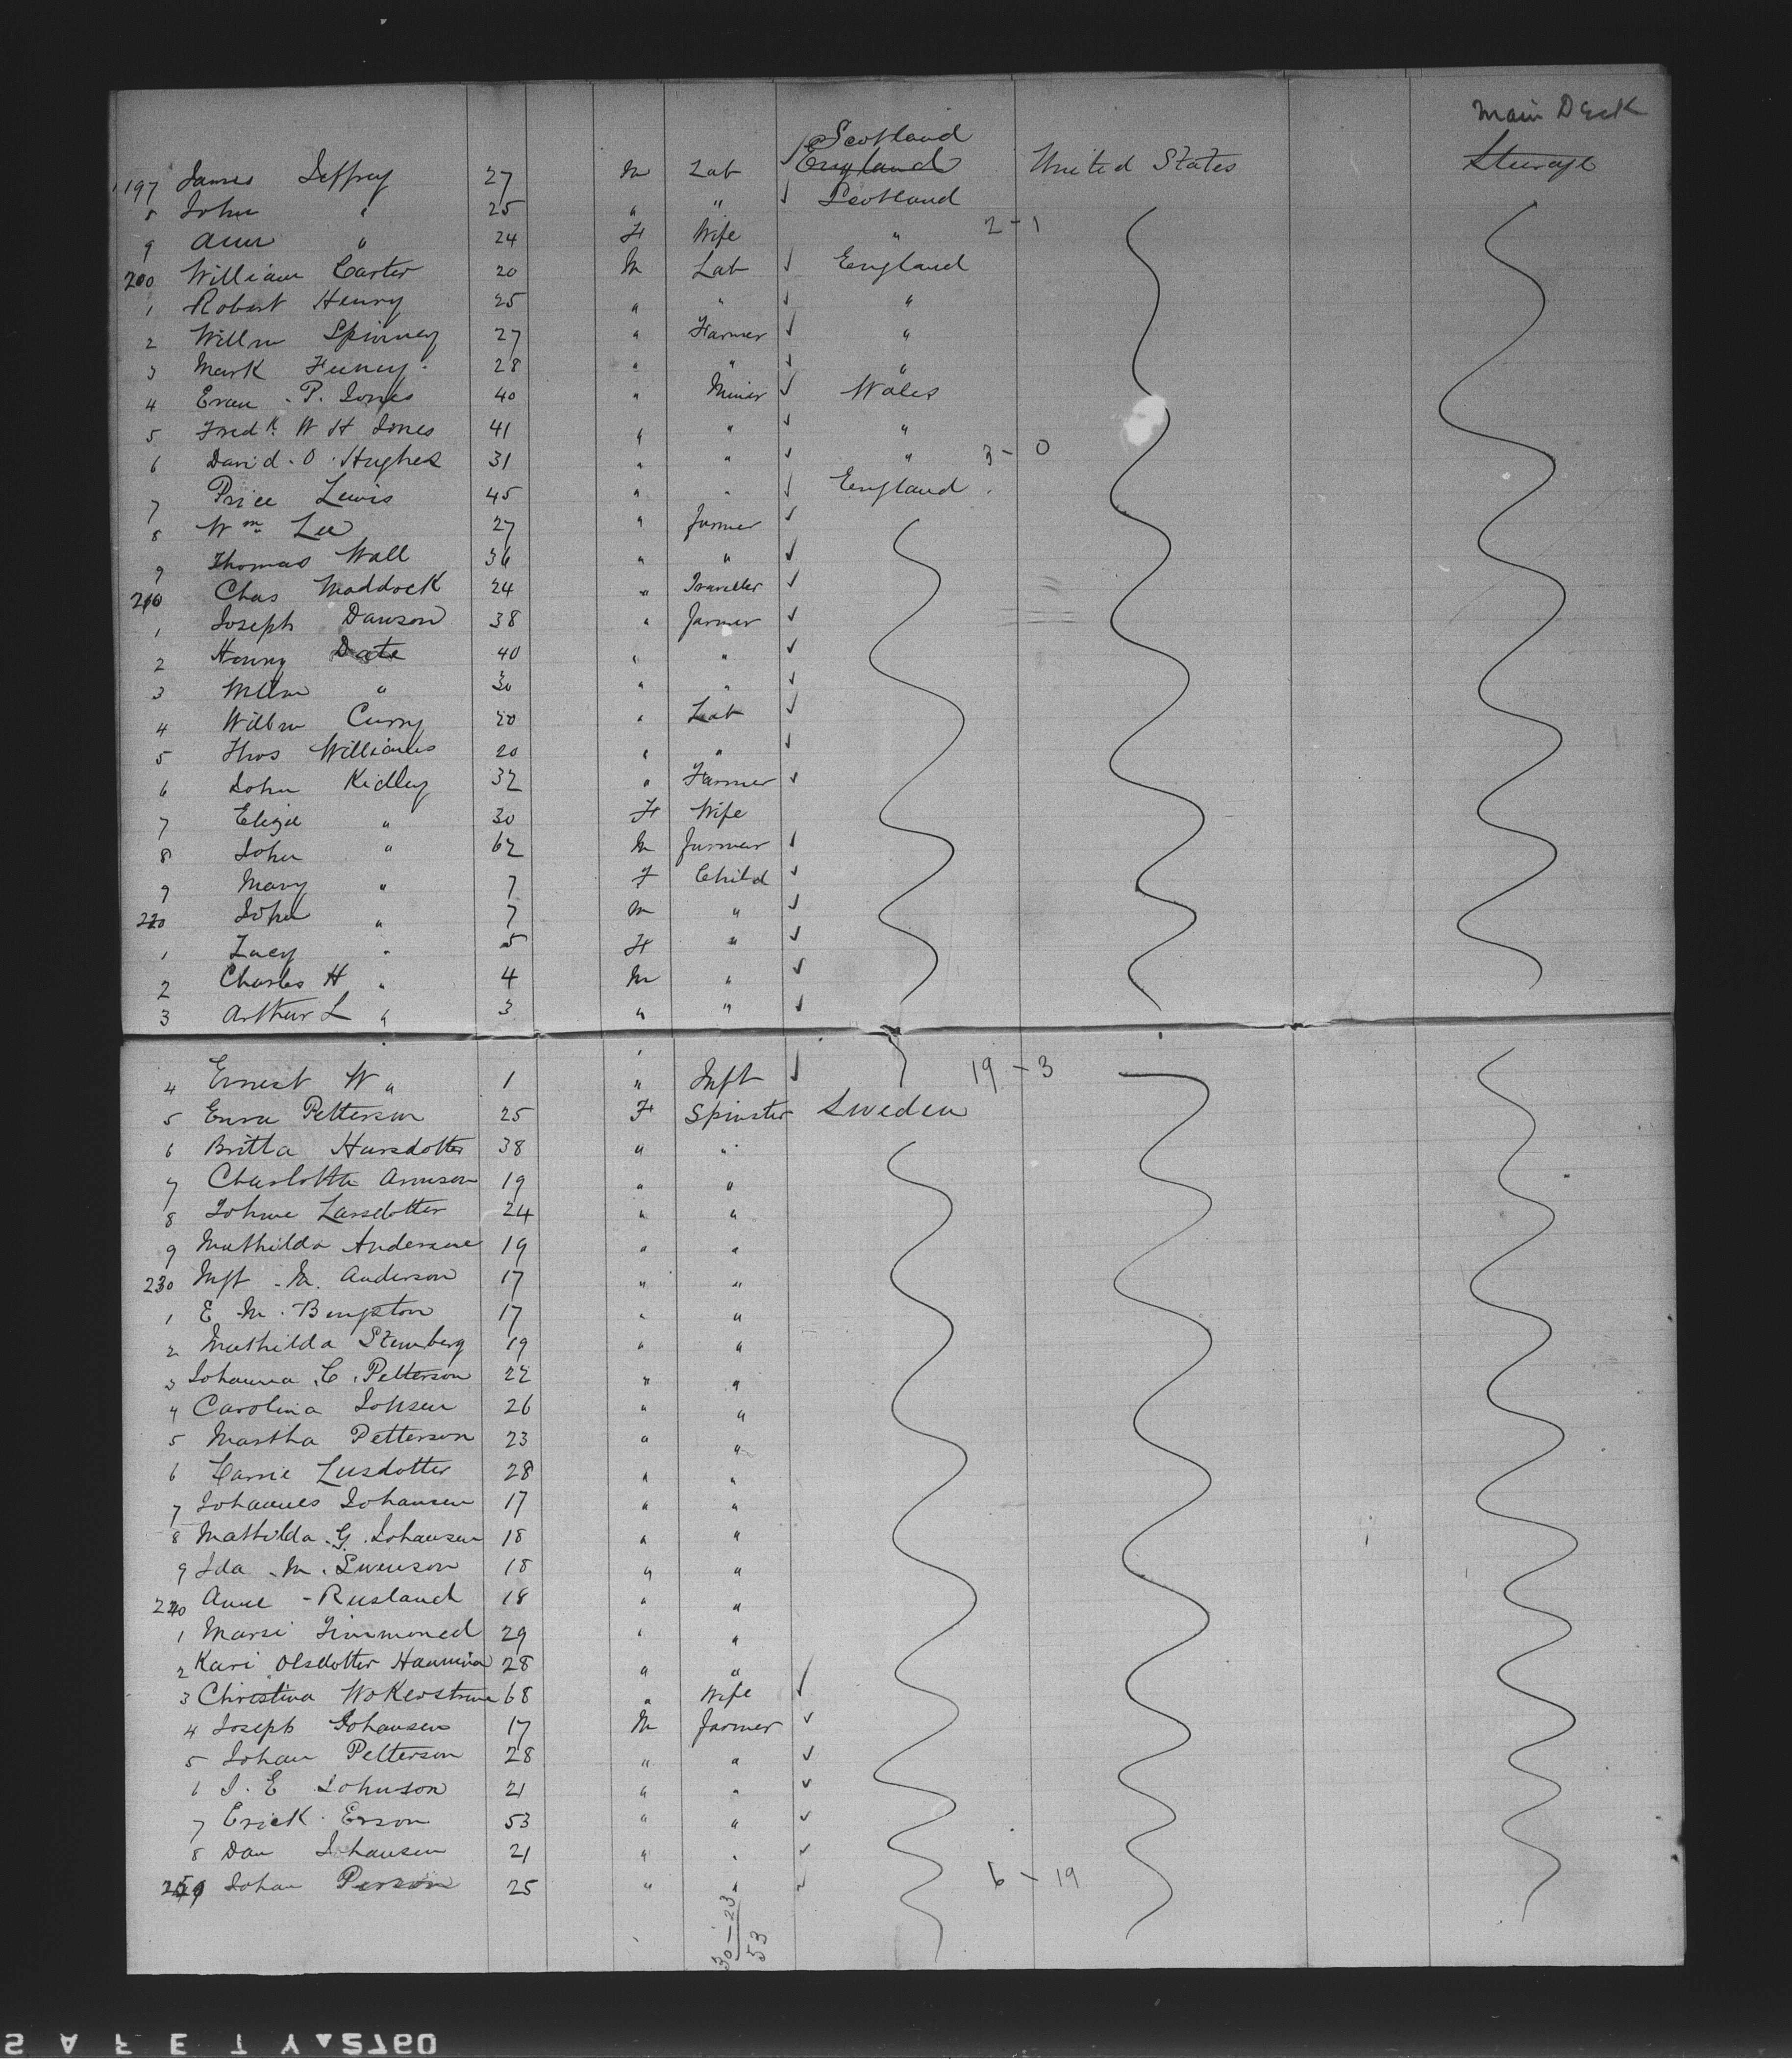 Main Deck
Scotland
197 James Jeffrey 27 M Lab ✓ England United States Steerage
8 John " 25 " " ✓ Scotland
9 Ann " 24 F Wife " 2-1
200 William Carter 20 M Lab ✓ England
1 Robert Henry 25 " " ✓ "
2 Willm Spinney 27 " Farmer ✓ "
3 Mark 28 " " ✓ "
4 Evan P. Jones 40 " Miner ✓ Wales
5 Fredk W H Jones 41 " " ✓ "
6 David O. Hughes 31 " " ✓ " 3-0
7 Price Lewis 45 " " ✓ England
8 Wm Lee 27 " Farmer ✓
9 Thomas Wall 36 " " ✓
210 Chas Maddock 24 " Traveller ✓
1 Joseph Dawson 38 " Farmer ✓
2 Henry Date 40 " " ✓
3 Willm " 30 " " ✓
4 Willm Curry 20 " Lab ✓
5 Thos Williams 20 " " ✓
6 John Kidley 32 " Farmer ✓
7 Eliza " 30 F Wife
8 John " 62 M Farmer ✓
9 Mary " 7 F Child ✓
220 John " 7 M " ✓
1 Lucy " 5 F " ✓
2 Charles H " 4 M " ✓
3 Arthur L " 3 " " ✓
4 Ernest W " 1 " Inft ✓ 19-3
5 Petterson 25 F Spinster Sweden
6 Britta Hansdotter 38 " "
7 Charlotta 19 " "
8 Larsdotter 24 " "
9 Mathilda 19 " "
230 M. Anderson 17 " "
1 E M. Bengston 17 " "
2 Mathilda Stenberg 19 " "
3 Johanna C. Petterson 22 " "
4 Carolina 26 " "
5 Martha Petterson 23 " "
6 28 " "
7 Johannes Johansen 17 " "
8 Mathilda G. Johansen 18 " "
9 Ida M. Swenson 18 " "
240 Anne Rusland 18 " "
1 29 " "
2 Kari Olsdotter 28 " "
3 Christina 68 " Wife ✓
4 Joseph Johansen 17 M Farmer ✓
5 Johan Petterson 28 " " ✓
6 J. E Johnson 21 " " ✓
7 Erick Erson 53 " " ✓
8 Dan Johansen 21 " " ✓
Johan Person 25 " " ✓ 6-19
30-23
53
SAFETY▲2760